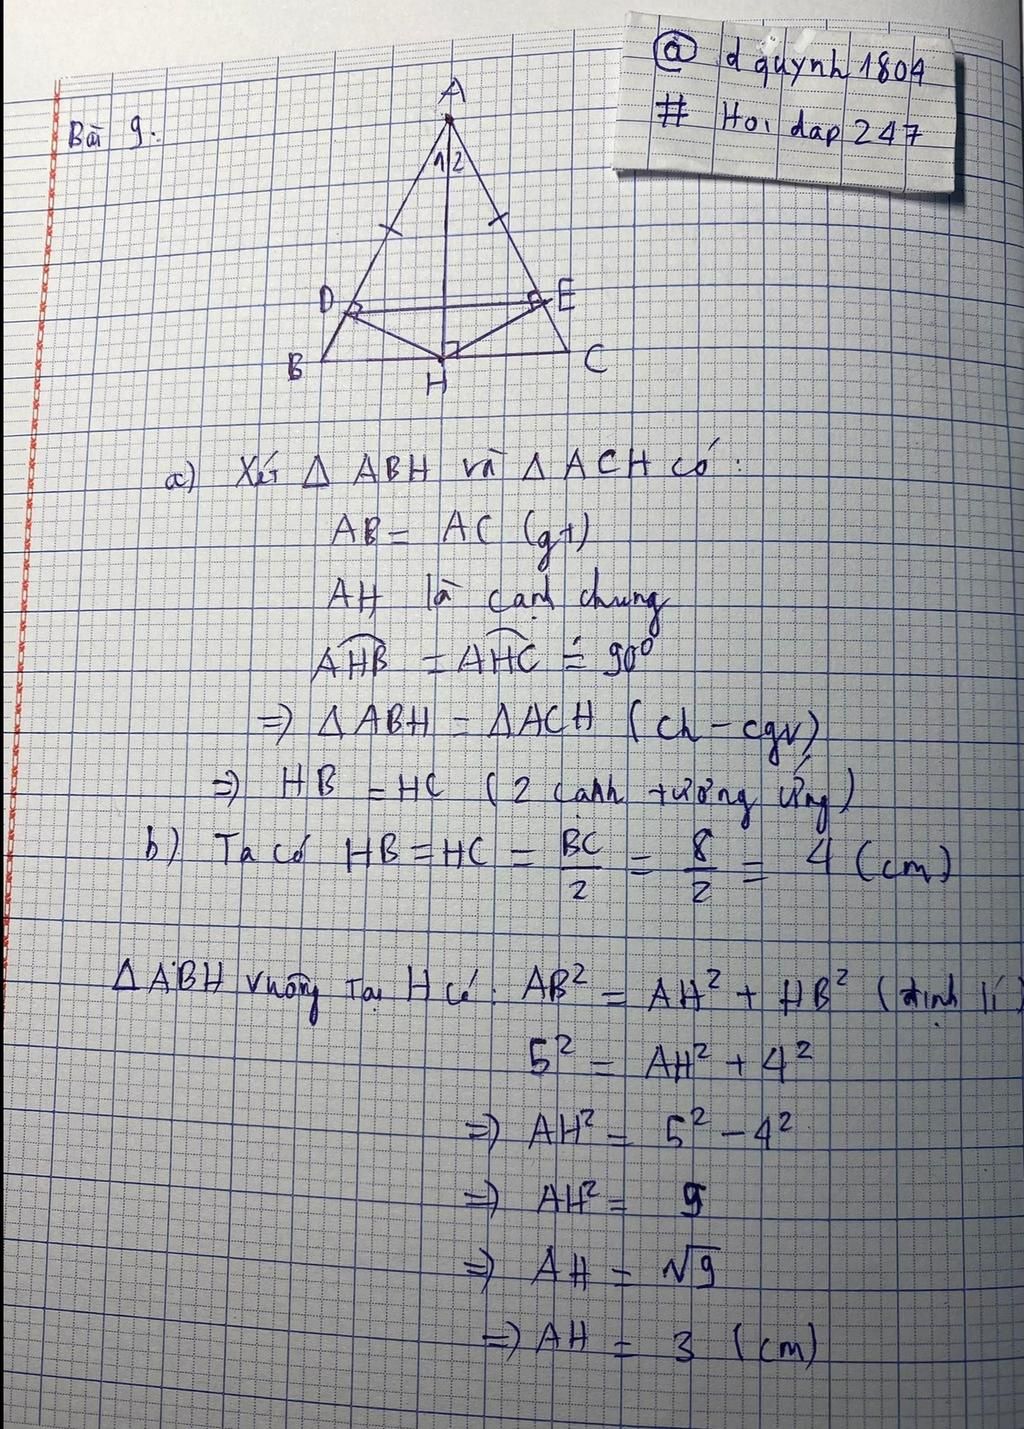 @ dquynh 1804
# Hoi dap 247
Bài 9:
A
1 2
D E
B H C
a) Xét Δ ABH và Δ ACH có:
AB = AC (gt)
AH là cạnh chung
AHB = AHC = 90°
=> Δ ABH = Δ ACH (ch - cgv)
=> HB = HC (2 cạnh tương ứng)
b) Ta có HB = HC = BC/2 = 8/2 = 4 (cm)
Δ ABH vuông tại H có: AB² = AH² + HB² (định lí
5² = AH² + 4²
=> AH² = 5² - 4²
=> AH² = 9
=> AH = √9
=> AH = 3 (cm)